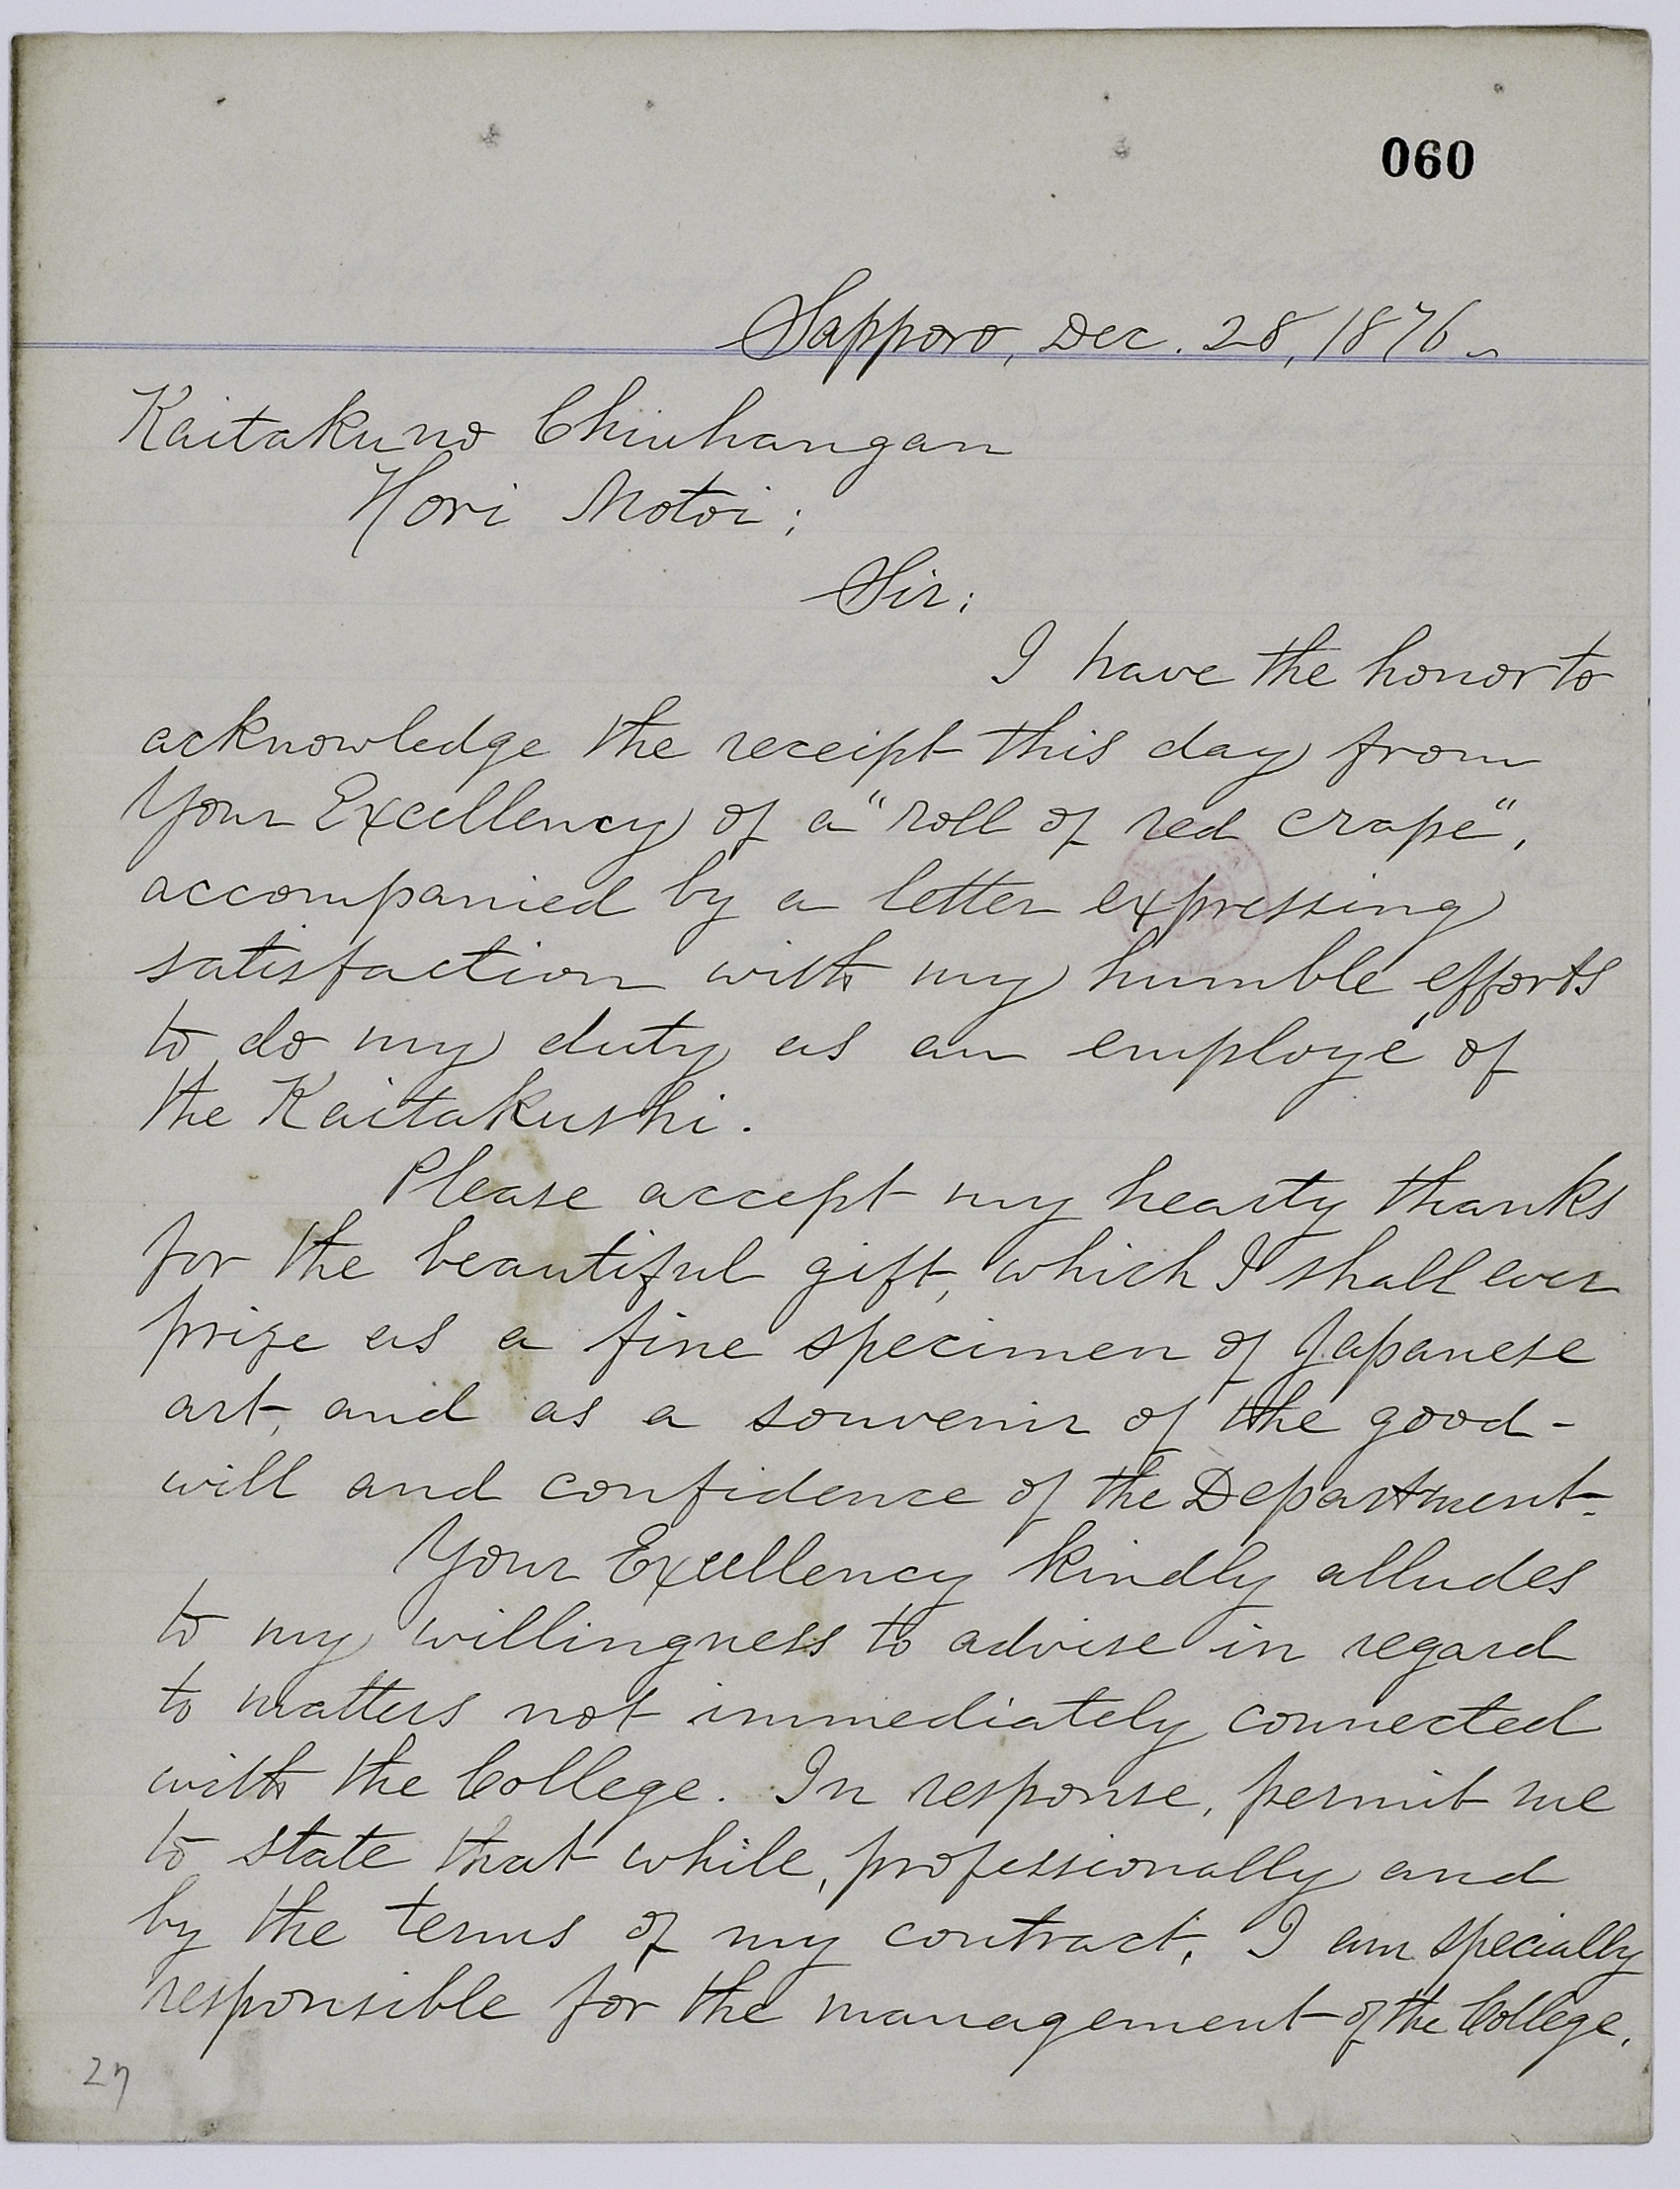 060
Sapporo, Dec. 28, 1876.
Kaitaku no Chiuhangan
Hori Motoi;
Sir;
I have the honor to
acknowledge the receipt this day from
Your Excellency of a "roll of red crape",
accompanied by a letter expressing
satisfaction with my humble efforts
to do my duty as an employé of
the Kaitakushi.
Please accept my hearty thanks
for the beautiful gift, which I shall ever
prize as a fine specimen of Japanese
art, and as a souvenir of the good-
will and confidence of the Department.
Your Excellency kindly alludes
to my willingness to advise in regard
to matters not immediately connected
with the College. In response, permit me
to state that while, professionally and
by the terms of my contract, I am specially
responsible for the management of the College,
27